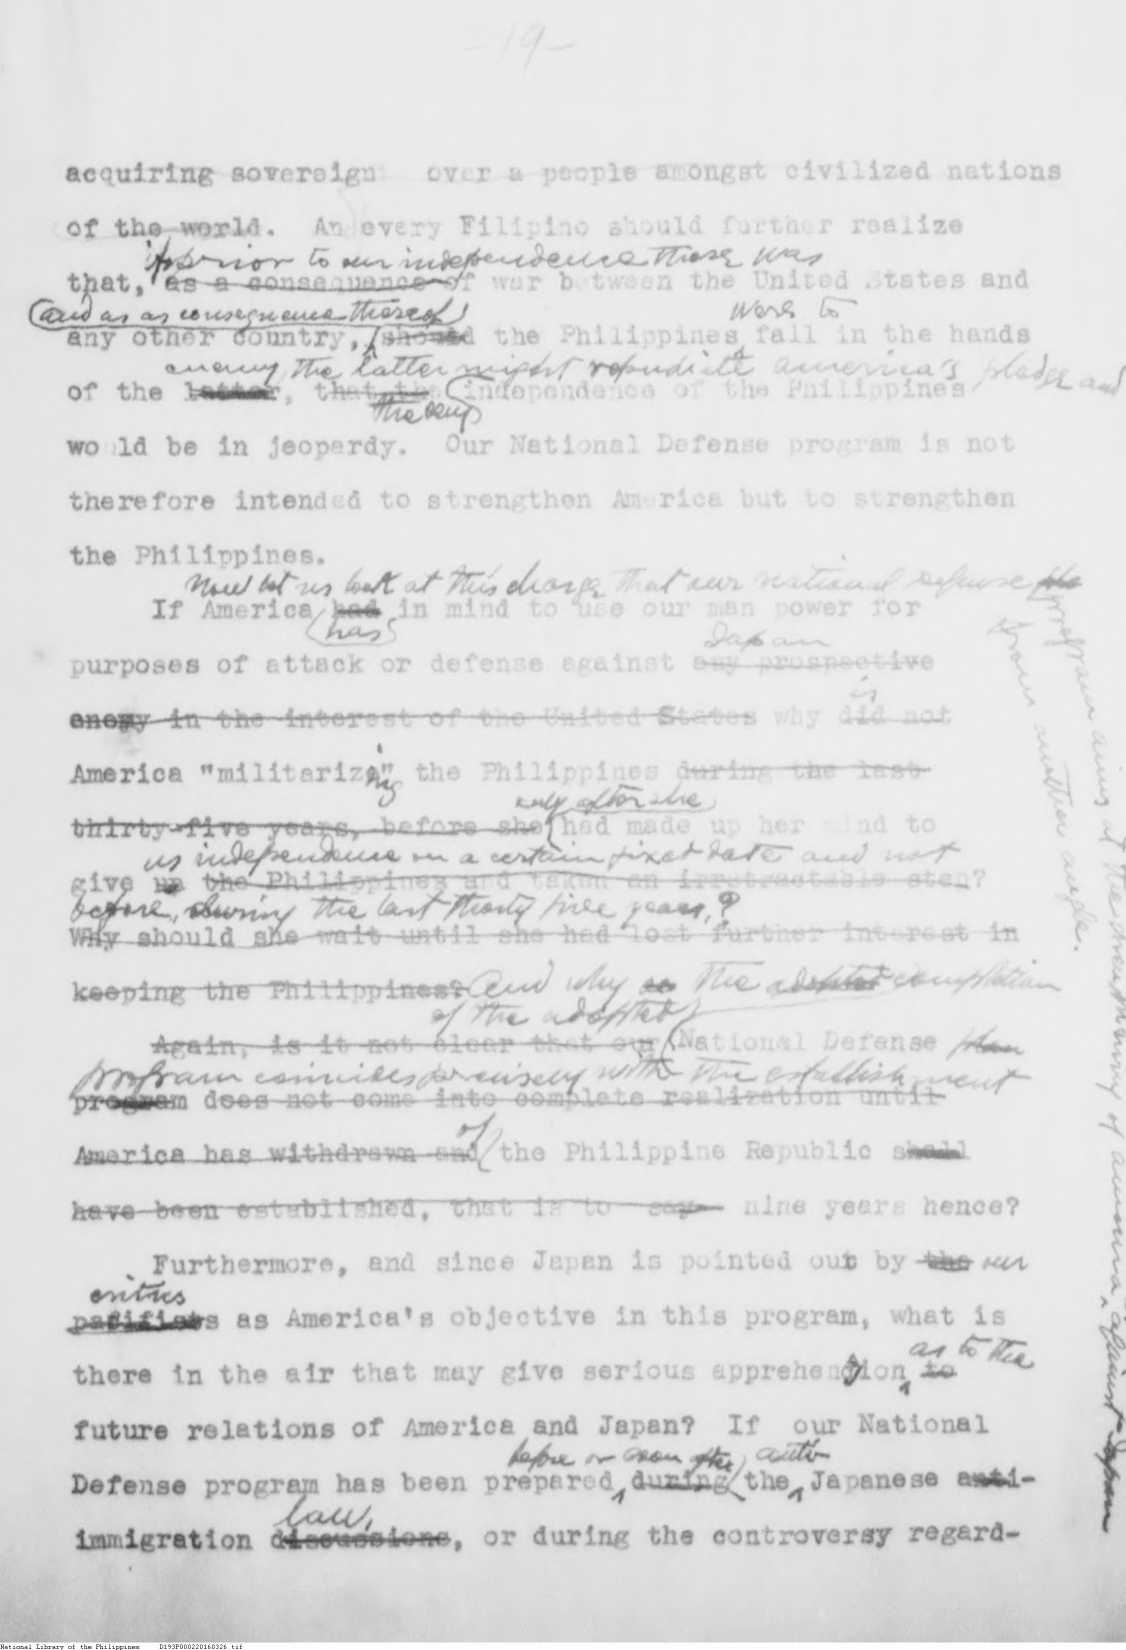 - 19 -
acquiring sovereign over a people amongst civilized nations
of the world. And every Filipino should further realize
if prior to our independence there was
that, as a consequence of war between the United States and
and as a consequence thereof were to
any other country, should the Philippines fall in the hands
enemy, the latter might repudiate America's pledge and
of the latter, that the independence of the Philippines
the
would be in jeopardy. Our National Defense program is not
therefore intended to strengthen America but to strengthen
the Philippines.
Now let us look at this charge that our national defense
program aims at the of America against Japan
from another angle.
If America had in mind to use our man power for
has Japan
purposes of attack or defense against any prospective
is
enemy in the interest of the United States why did not
America "militarize" the Philippines during the last
ing
only after she
thirty-five years, before she had made up her mind to
us independence on a certain fixed date and not
give up the Philippines and taken an irretractable step?
before, during the last thirty five years?
Why should she wait until she had lost further interest in
keeping the Philippines? And why is the adopted completion
of the adopted
Again, is it not clear that our National Defense plan
program coincides precisely with the establishment
program does not come into complete realization until
of
America has withdrawn and the Philippine Republic shall
have been established, that is to say nine years hence?
Furthermore, and since Japan is pointed out by the our
critics
pacifists as America's objective in this program, what is
as to the
there in the air that may give serious apprehension to
future relations of America and Japan? If our National
before or soon after anti-
Defense program has been prepared during the Japanese anti-
law,
immigration discussions, or during the controversy regard-
National Library of the Philippines D193P000220160326 tif